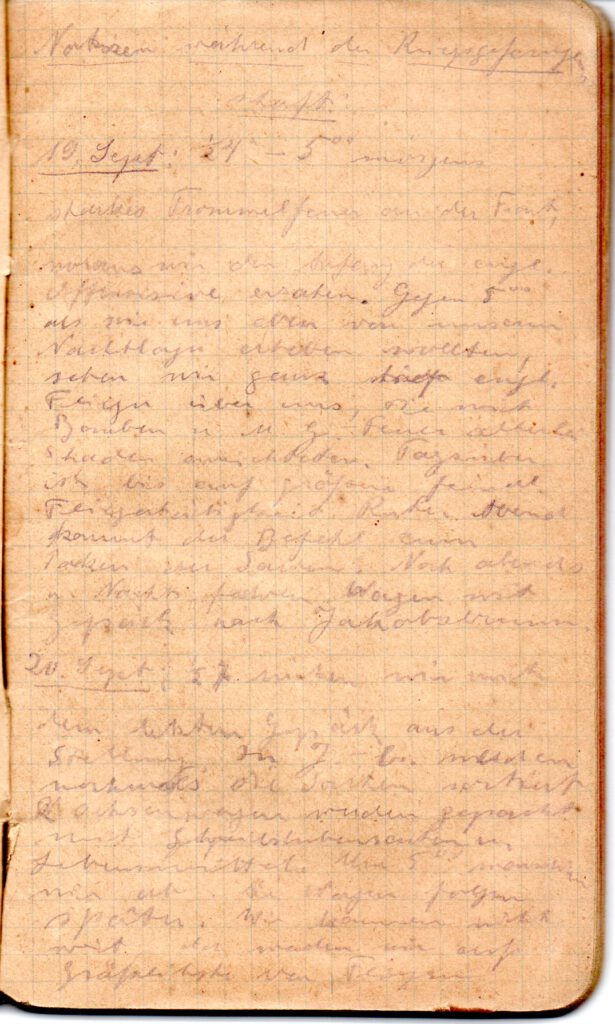 Notizen während der Kriegsgefangen
schaft:
19. Sept: ½4 - 5⁰⁰ morgens
starkes Trommelfeuer an der Front,
woraus wir den Anfang der engl.
Offensive erraten. Gegen 5⁰⁰
als wir uns eben von unserem
Nachtlager erheben wollten,
sehen wir ganz tief engl.
Flieger über uns, die mit
Bomben u. M. G. Feuer allerlei
Schaden anrichteten. Tagsüber
ist bis auf größere feindl.
Fliegertätigkeit Ruhe. Abend
kommt der Befehl zum
Packen der Sachen. Noch abends
u. Nachts fahren Wagen mit
Gepäck nach Jakobsbrunnen.
20. Sept: ½7 rücken wir mit
dem letzten Gepäck aus der
Stellung. In J.-br. werden
nochmals die Sachen sortiert
Ochsenwagen werden gepackt
mit Schreibstubensachen u.
Lebensmitteln. Um 5⁰⁰ marschieren
wir ab. Die Wagen folgen
später. Wir kommen nicht
weit. da werden wir aufs
Gräßlichste von Fliegern